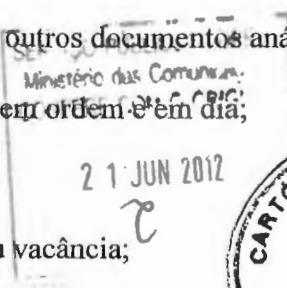 outros documentos
Ministério das Comunic
em ordem e em dia;
2 1 JUN 2012
vacância;
CART